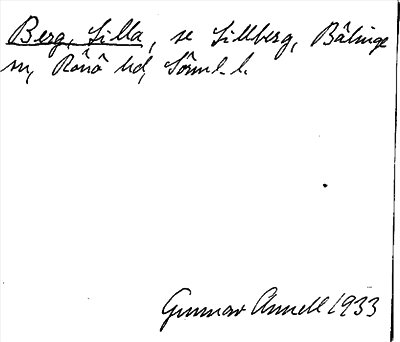 Berg, Silla, se Sillberg, Bälinge
sn, Rönö hd, Södml. l.
Gunnar Annell 1933